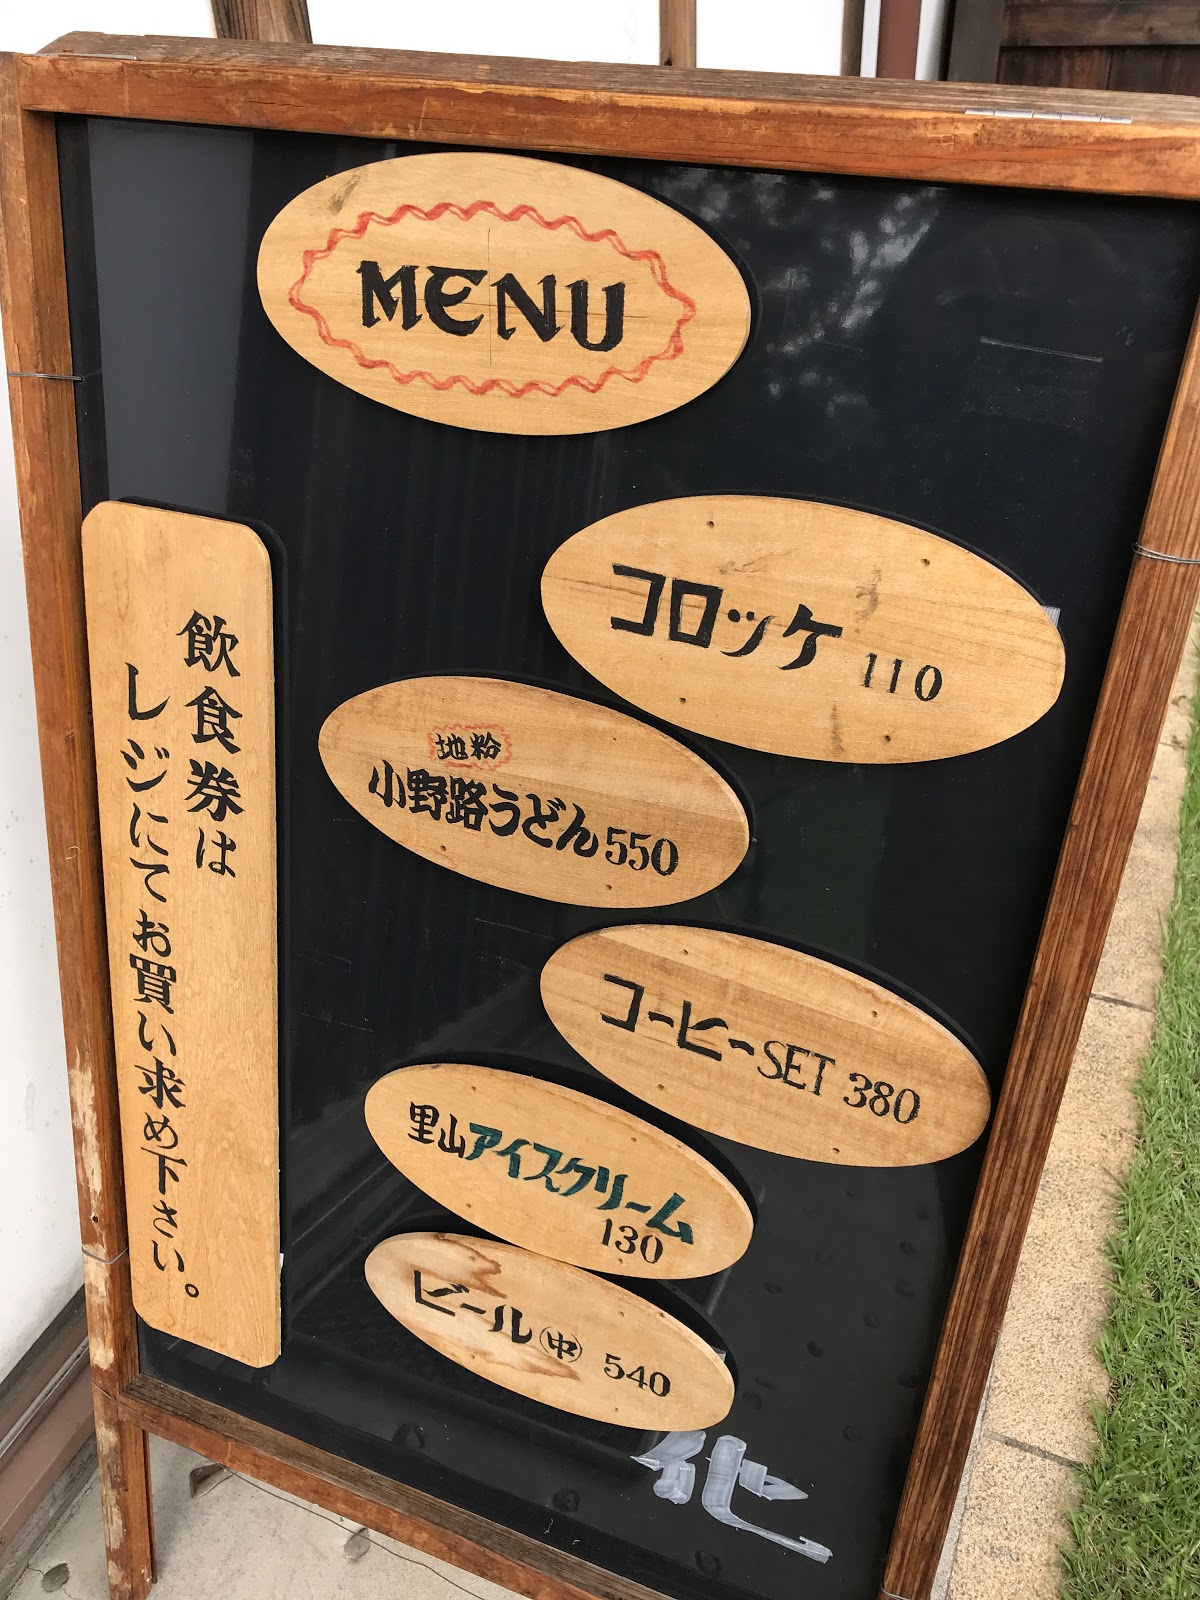 MENU
コロッケ 110
地粉
小野路うどん 550
コーヒーSET 380
里山アイスクリーム
130
ビール㊥ 540
他
飲食券は
レジにてお買い求め下さい。